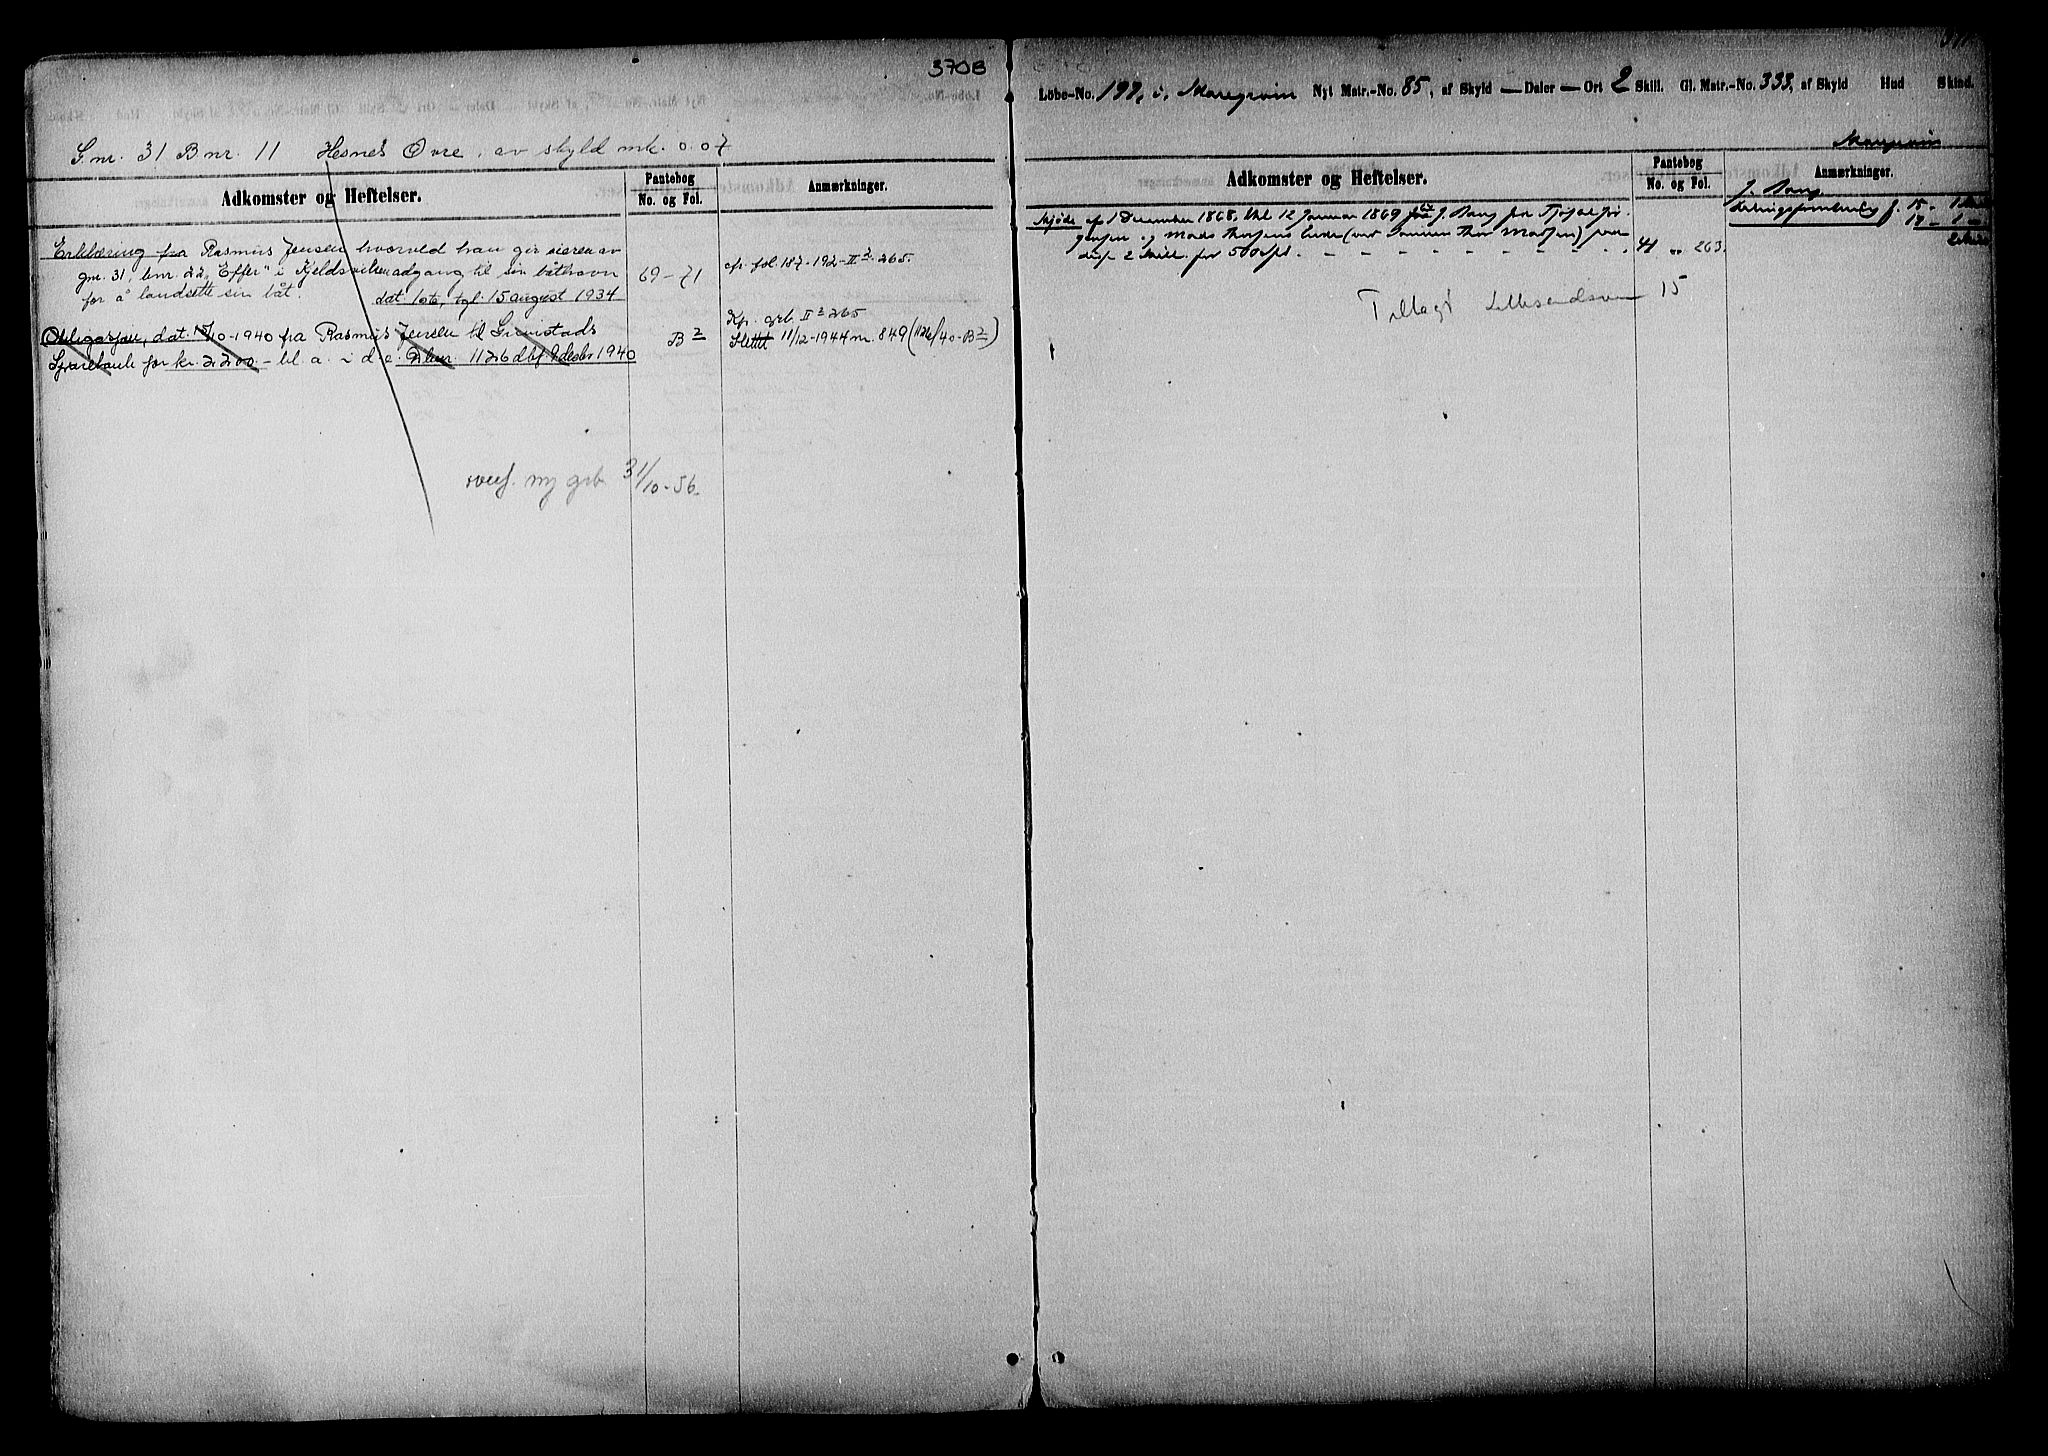 370B
G.nr. 31 B nr. 11 Hesnes Øvre, av skyld mk. 0.07
Adkomster og Heftelser.
Pantebog
No. og Fol.
Anmærkninger.
Erklæring fra Rasmus Jensen hvorved han gir eieren av
gnr. 31, bnr. 22 "Effer" i Kjeldsviken adgang til sin båthavn
for å landsette sin båt. dat 10/8, tgl. 15 august 1934
69-71
cfr. fol. 187-192-II 2 265
Obligasjon, dat. 15/10-1940 fra Rasmus Jensen til Grimstads
Sparebank for kr. 2200 - til a. i d.e. D.bnr. 1126 dbf. 9 desbr 1940
B 2
Kfr. grb II 2 265
Slettet 11/12-1944 nr. 849 (1126/40-B2)
overf. ny grb. 31/10-56.
Löbe-No. 197, i, Maregrøin Nyt Matr.-No. 85, af Skyld — Daler — Ort 2 Skill. Gl. Matr.-No. 333, af Skyld Hud Skind.
Adkomster og Heftelser.
Pantebog
No. og Fol.
Anmærkninger.
Skjöde af 1 December 1868, thl 12 Januar 1869 fra
og Mads (ved Thor Madsen) paa
2 Skill. for 500 Spd. - - - - - - - -
41 " 263.
15 - 1
17 - 1
Tillagt 15